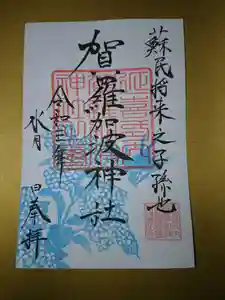 蘇民将来之子孫也
賀羅加波神社
令和三年
水月 日奉拝